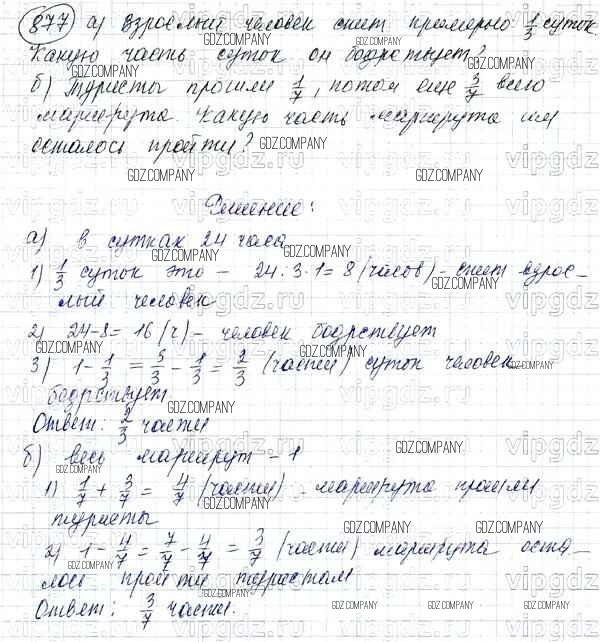 877 а) Взрослый человек спит примерно 1/3 суток.
Какую часть суток он бодрствует?
б) Туристы прошли 1/7, потом еще 3/7 всего
маршрута. Какую часть маршрута им
осталось пройти?
Решение:
а) В сутках 24 часа
1) 1/3 суток это – 24 : 3 · 1 = 8 (часов) – спит взрос–
лый человек
2) 24–8= 16 (ч) – человек бодрствует
3) 1 – 1/3 = 3/3 – 1/3 = 2/3 (части) суток человек
бодрствует.
Ответ: 2/3 части
б) весь маршрут – 1
1) 1/7 + 3/7 = 4/7 (части) – маршрута прошли
туристы
2) 1 – 4/7 = 7/7 – 4/7 = 3/7 (части) маршрута оста–
лось пройти туристам
Ответ: 3/7 части.
GDZ.COMPANY
vipgdz.ru